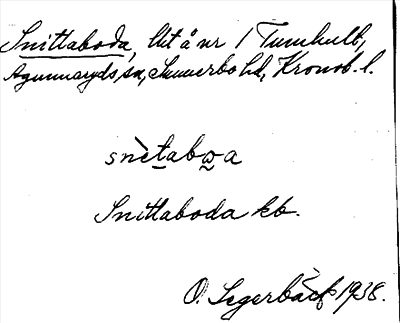 Snittaboda, lht å nr 1 Tunhult,
Agunnaryds sn, Sunnerbo hd, Kronob. l.
snètabωa
Snittaboda kb.
O. Segerbäck 1938.